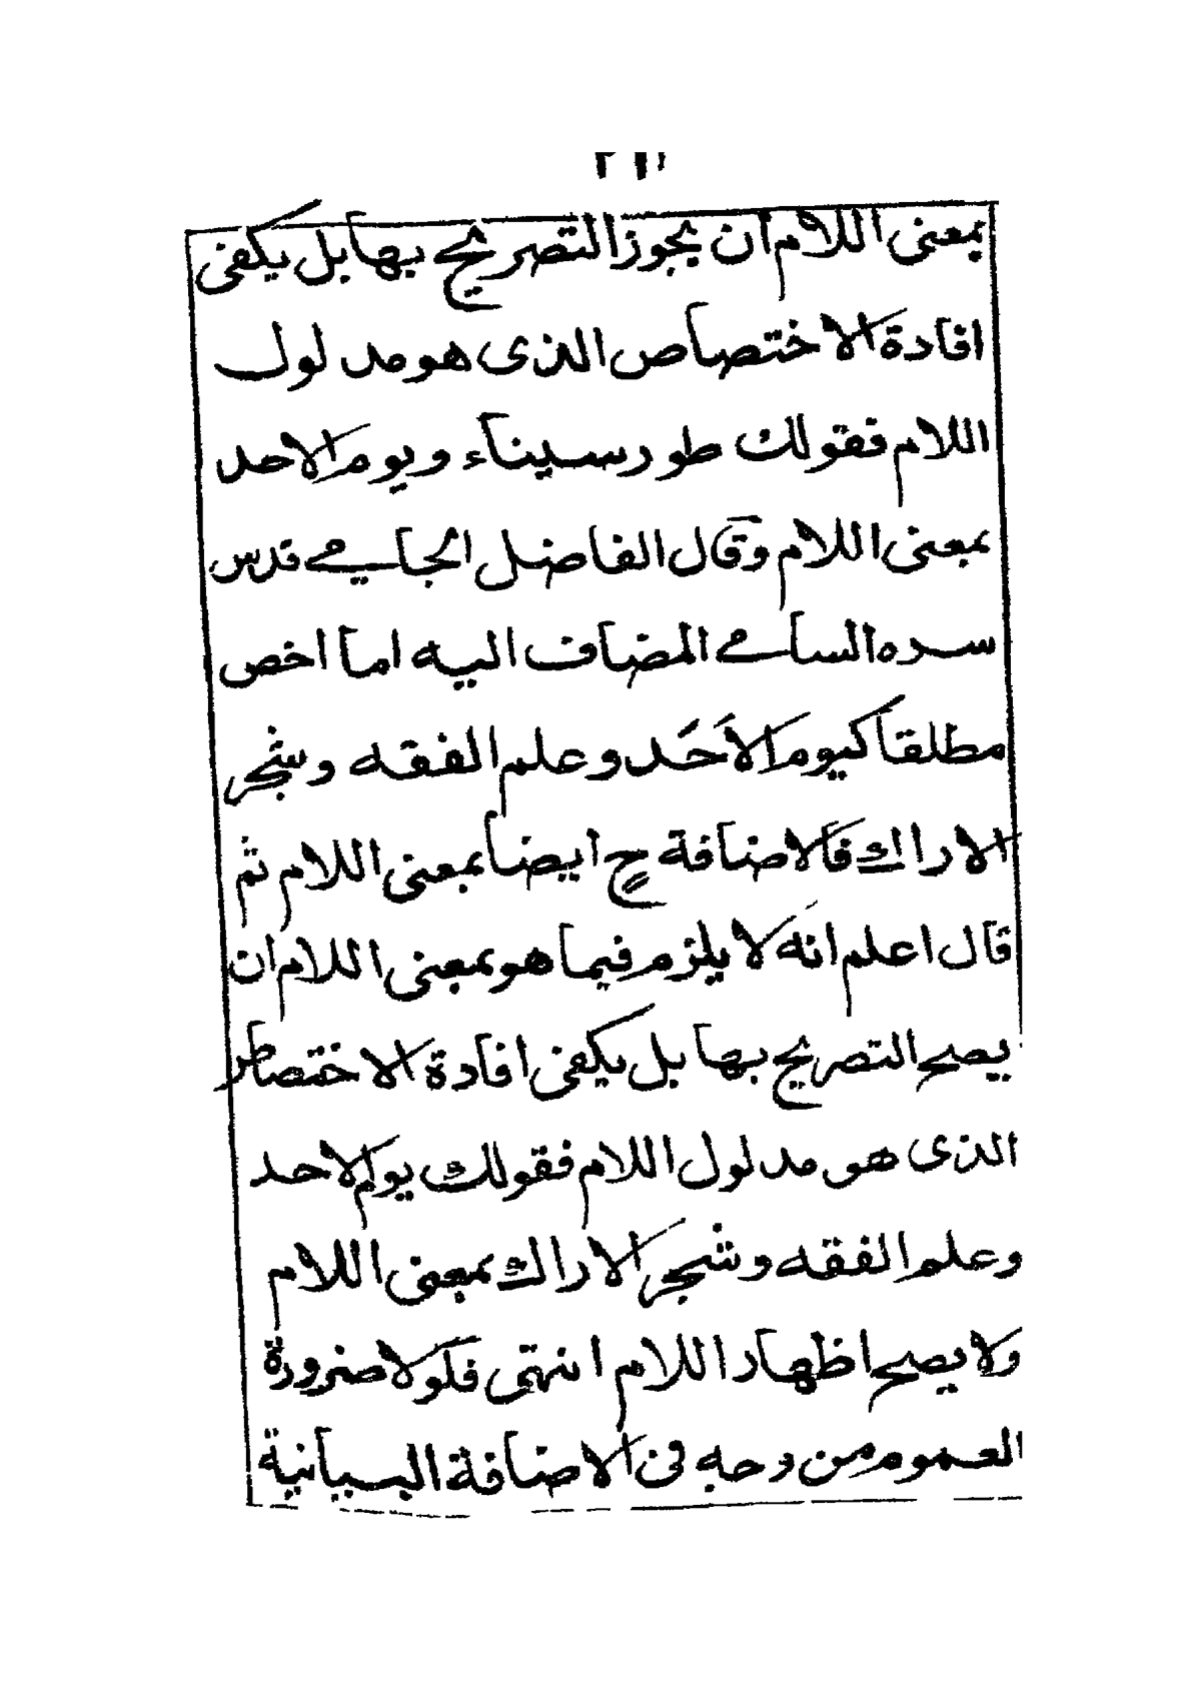 بمعنى اللام ان يجوز التصريح بها بل يكفى
افادة الاختصاص الذى هو مدلول
اللام فقولك طور سيناء ويوم الاحد
بمعنى اللام وقال الفاضل الجامي قدس
سره السامي المضاف اليه اما اخص
مطلقا كيوم الاَحَد وعلم الفقه وشجر
الاراك فالاضافة ح ايضا بمعنى اللام ثم
قال اعلم انه لا يلزم فيما هو بمعنى اللام ان
يصح التصريح بها بل يكفى افادة الاختصاص
الذى هو مدلول اللام فقولك يوم الاحد
وعلم الفقه وشجر الاراك بمعنى اللام
ولا يصح اظهار اللام انتهى فلولا ضرورة
العموم من وجه فى الاضافة البيانية